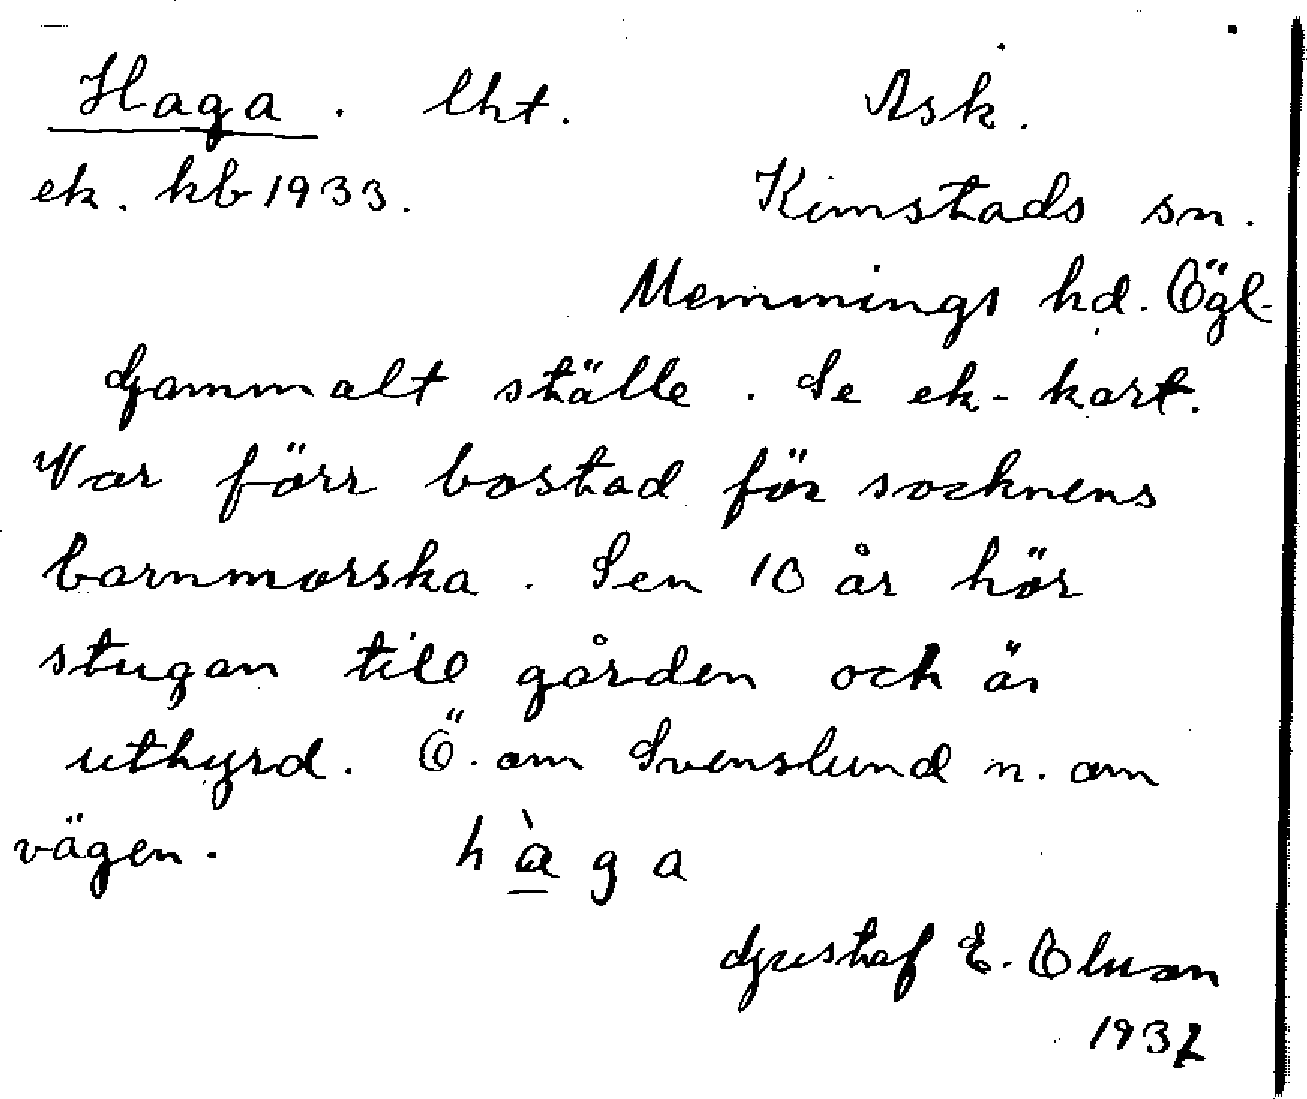 Haga. lht. Ask.
ek. kb 1933. Kimstads sn.
Memmings hd. Ögl-
Gammalt ställe. Se ek-kart.
Var förr bostad för socknens
barnmorska. Sen 10 år hör
stugan till gården och är
uthyrd. Ö. om Svenslund n. om
vägen. h à g a
Gustaf E. Olsson